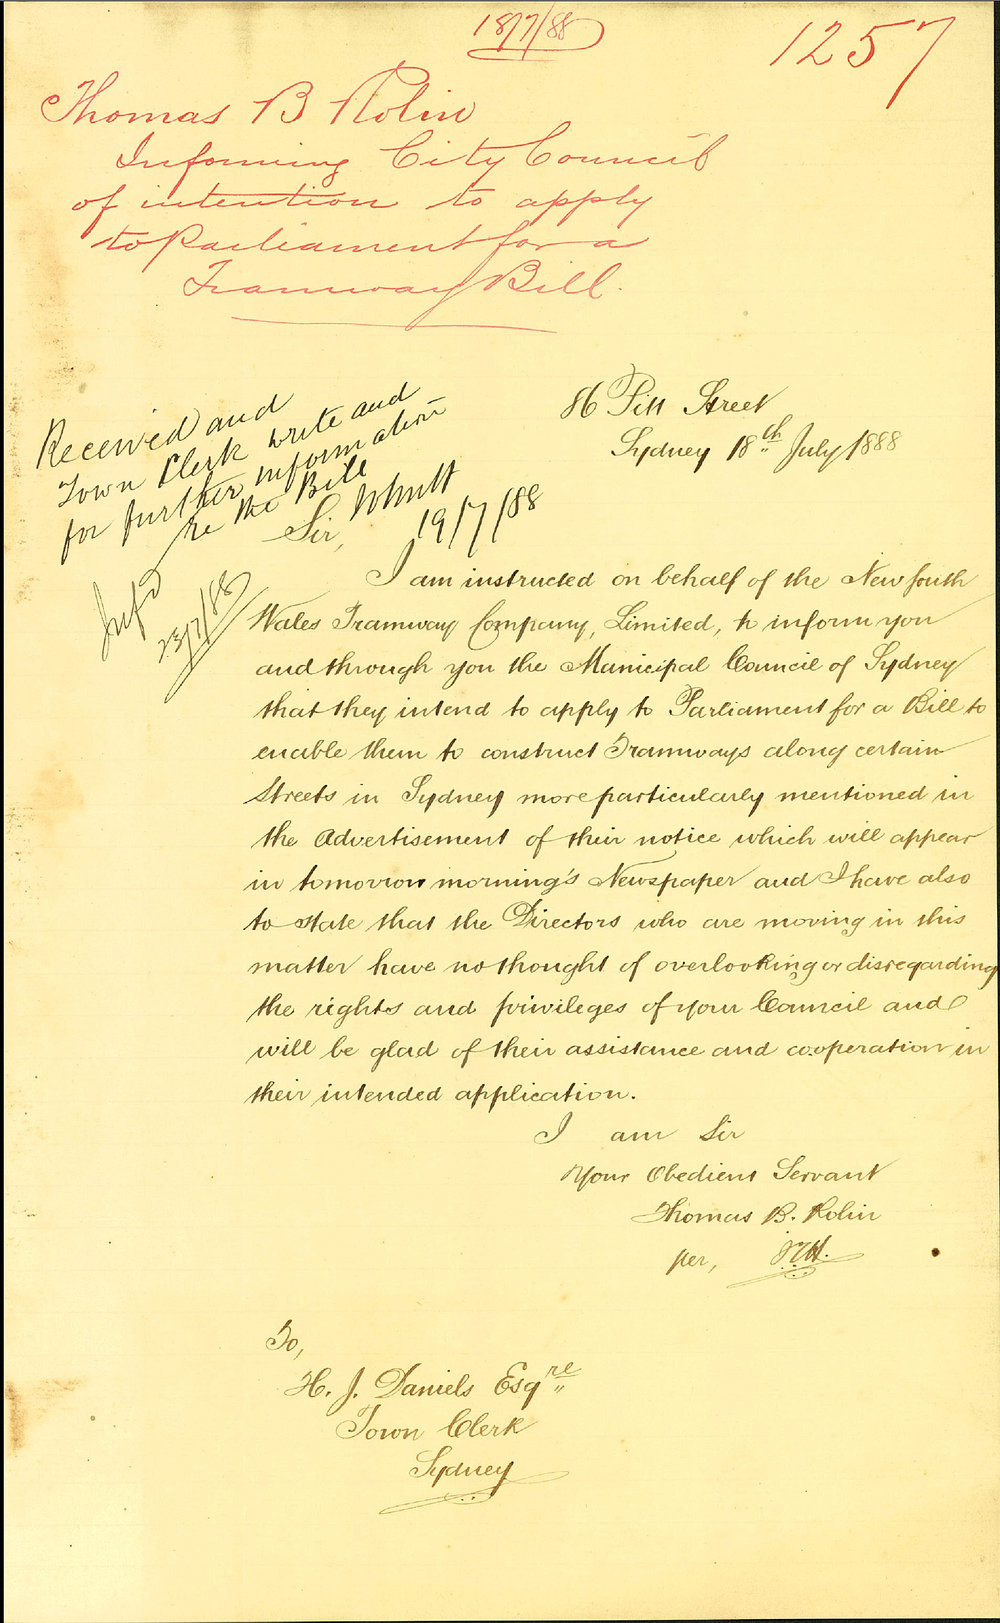 18/7/88
1257
Thomas B Rolin
Informing City Council
of intention to apply
to Parliament for a
Tramway Bill.
Received and
Town Clerk write and
for further information
re the Bill
19/7/88
Inf'd
23/7/88
86 Pitt Street
Sydney 18th July 1888
Sir,
I am instructed on behalf of the New South
Wales Tramway Company, Limited, to inform you
and through you the Municipal Council of Sydney
that they intend to apply to Parliament for a Bill to
enable them to construct Tramways along certain
Streets in Sydney more particularly mentioned in
the Advertisement of their notice which will appear
in tomorrow morning's Newspaper and I have also
to state that the Directors who are moving in this
matter have no thought of overlooking or disregarding
the rights and privileges of your Council and
will be glad of their assistance and cooperation in
their intended application.
I am Sir
Your Obedient Servant
Thomas B. Rolin
per,
To,
H. J. Daniels Esqre
Town Clerk
Sydney